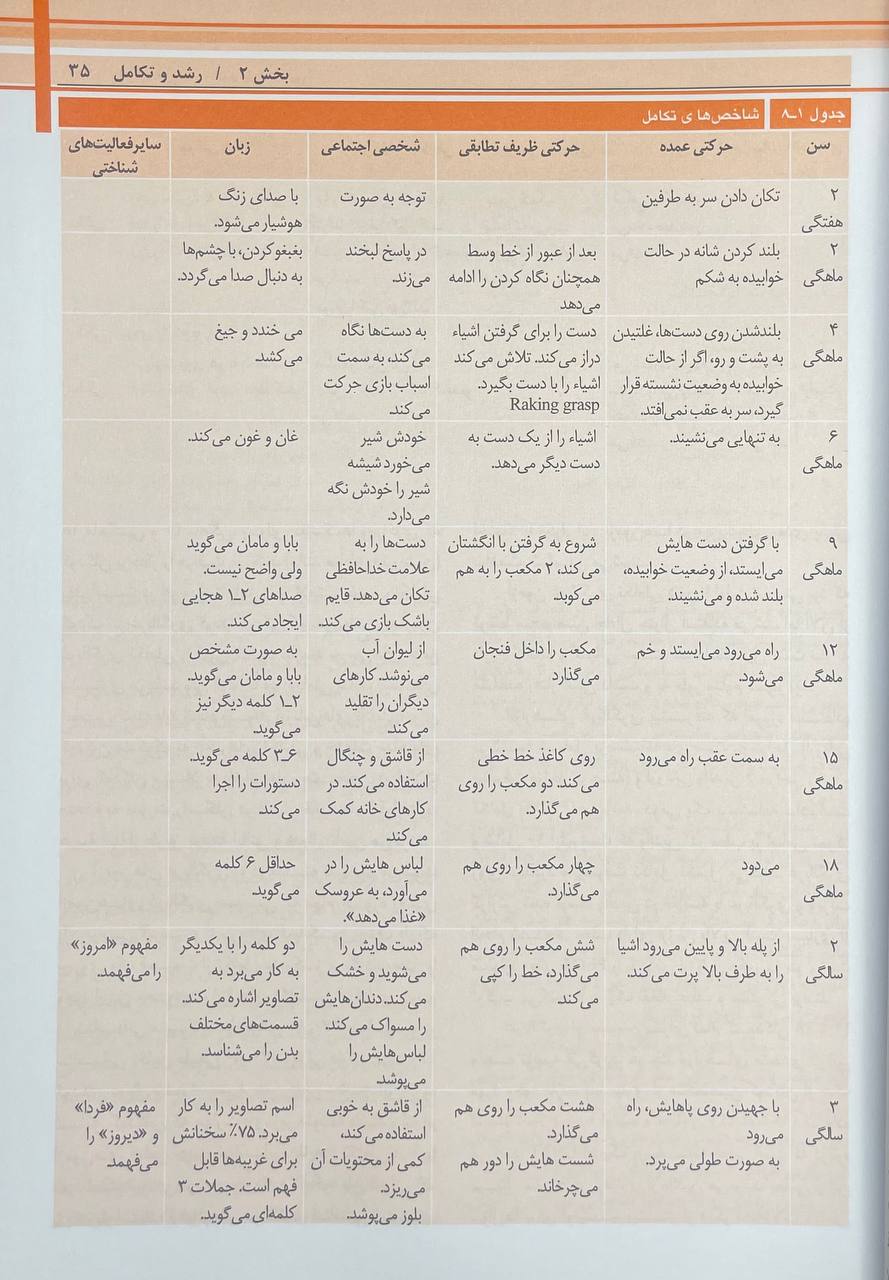 بخش ۲ / رشد و تکامل ۳۵
جدول ۱-۸ شاخص‌های تکامل
سن
حرکتی عمده
حرکتی ظریف تطابقی
شخصی اجتماعی
زبان
سایرفعالیت‌های
شناختی
۲
هفتگی
تکان دادن سر به طرفین
توجه به صورت
با صدای زنگ
هوشیار می‌شود.
۲
ماهگی
بلند کردن شانه در حالت
خوابیده به شکم
بعد از عبور از خط وسط
همچنان نگاه کردن را ادامه
می‌دهد
در پاسخ لبخند
می‌زند.
بغبغو کردن، با چشم‌ها
به دنبال صدا می‌گردد.
۴
ماهگی
بلندشدن روی دست‌ها، غلتیدن
به پشت و رو، اگر از حالت
خوابیده به وضعیت نشسته قرار
گیرد، سر به عقب نمی‌افتد.
دست را برای گرفتن اشیاء
دراز می‌کند. تلاش می‌کند
اشیاء را با دست بگیرد.
Raking grasp
به دست‌ها نگاه
می‌کند، به سمت
اسباب بازی حرکت
می‌کند.
می خندد و جیغ
می‌کشد.
۶
ماهگی
به تنهایی می‌نشیند.
اشیاء را از یک دست به
دست دیگر می‌دهد.
خودش شیر
می‌خورد شیشه
شیر را خودش نگه
می‌دارد.
غان و غون می‌کند.
۹
ماهگی
با گرفتن دست هایش
می‌ایستد، از وضعیت خوابیده،
بلند شده و می‌نشیند.
شروع به گرفتن با انگشتان
می‌کند، ۲ مکعب را به هم
می‌کوبد.
دست‌ها را به
علامت خداحافظی
تکان می‌دهد. قایم
باشک بازی می‌کند.
بابا و مامان می‌گوید
ولی واضح نیست.
صداهای ۲-۱ هجایی
ایجاد می‌کند.
۱۲
ماهگی
راه می‌رود می‌ایستد و خم
می‌شود.
مکعب را داخل فنجان
می‌گذارد
از لیوان آب
می‌نوشد. کارهای
دیگران را تقلید
می‌کند.
به صورت مشخص
بابا و مامان می‌گوید.
۲-۱ کلمه دیگر نیز
می‌گوید.
۱۵
ماهگی
به سمت عقب راه می‌رود
روی کاغذ خط خطی
می‌کند. دو مکعب را روی
هم می‌گذارد.
از قاشق و چنگال
استفاده می‌کند. در
کارهای خانه کمک
می‌کند
۶-۳ کلمه می‌گوید.
دستورات را اجرا
می‌کند.
۱۸
ماهگی
می‌دود
چهار مکعب را روی هم
می‌گذارد.
لباس هایش را در
می‌آورد، به عروسک
«غذا می‌دهد».
حداقل ۶ کلمه
می‌گوید.
۲
سالگی
از پله بالا و پایین می‌رود اشیا
را به طرف بالا پرت می‌کند.
شش مکعب را روی هم
می‌گذارد، خط را کپی
می‌کند.
دست هایش را
می‌شوید و خشک
می‌کند. دندان‌هایش
را مسواک می‌کند.
لباس‌هایش را
می‌پوشد.
دو کلمه را با یکدیگر
به کار می‌برد به
تصاویر اشاره می‌کند.
قسمت‌های مختلف
بدن را می‌شناسد.
مفهوم «امروز»
را می‌فهمد.
۳
سالگی
با جهیدن روی پاهایش، راه
می‌رود
به صورت طولی می‌پرد.
هشت مکعب را روی هم
می‌گذارد.
شست هایش را دور هم
می‌چرخاند.
از قاشق به خوبی
استفاده می‌کند،
کمی از محتویات آن
می‌ریزد.
بلوز می‌پوشد.
اسم تصاویر را به کار
می‌برد. ۷۵٪ سخنانش
برای غریبه‌ها قابل
فهم است. جملات ۳
کلمه‌ای می‌گوید.
مفهوم «فردا»
و «دیروز» را
می‌فهمد.